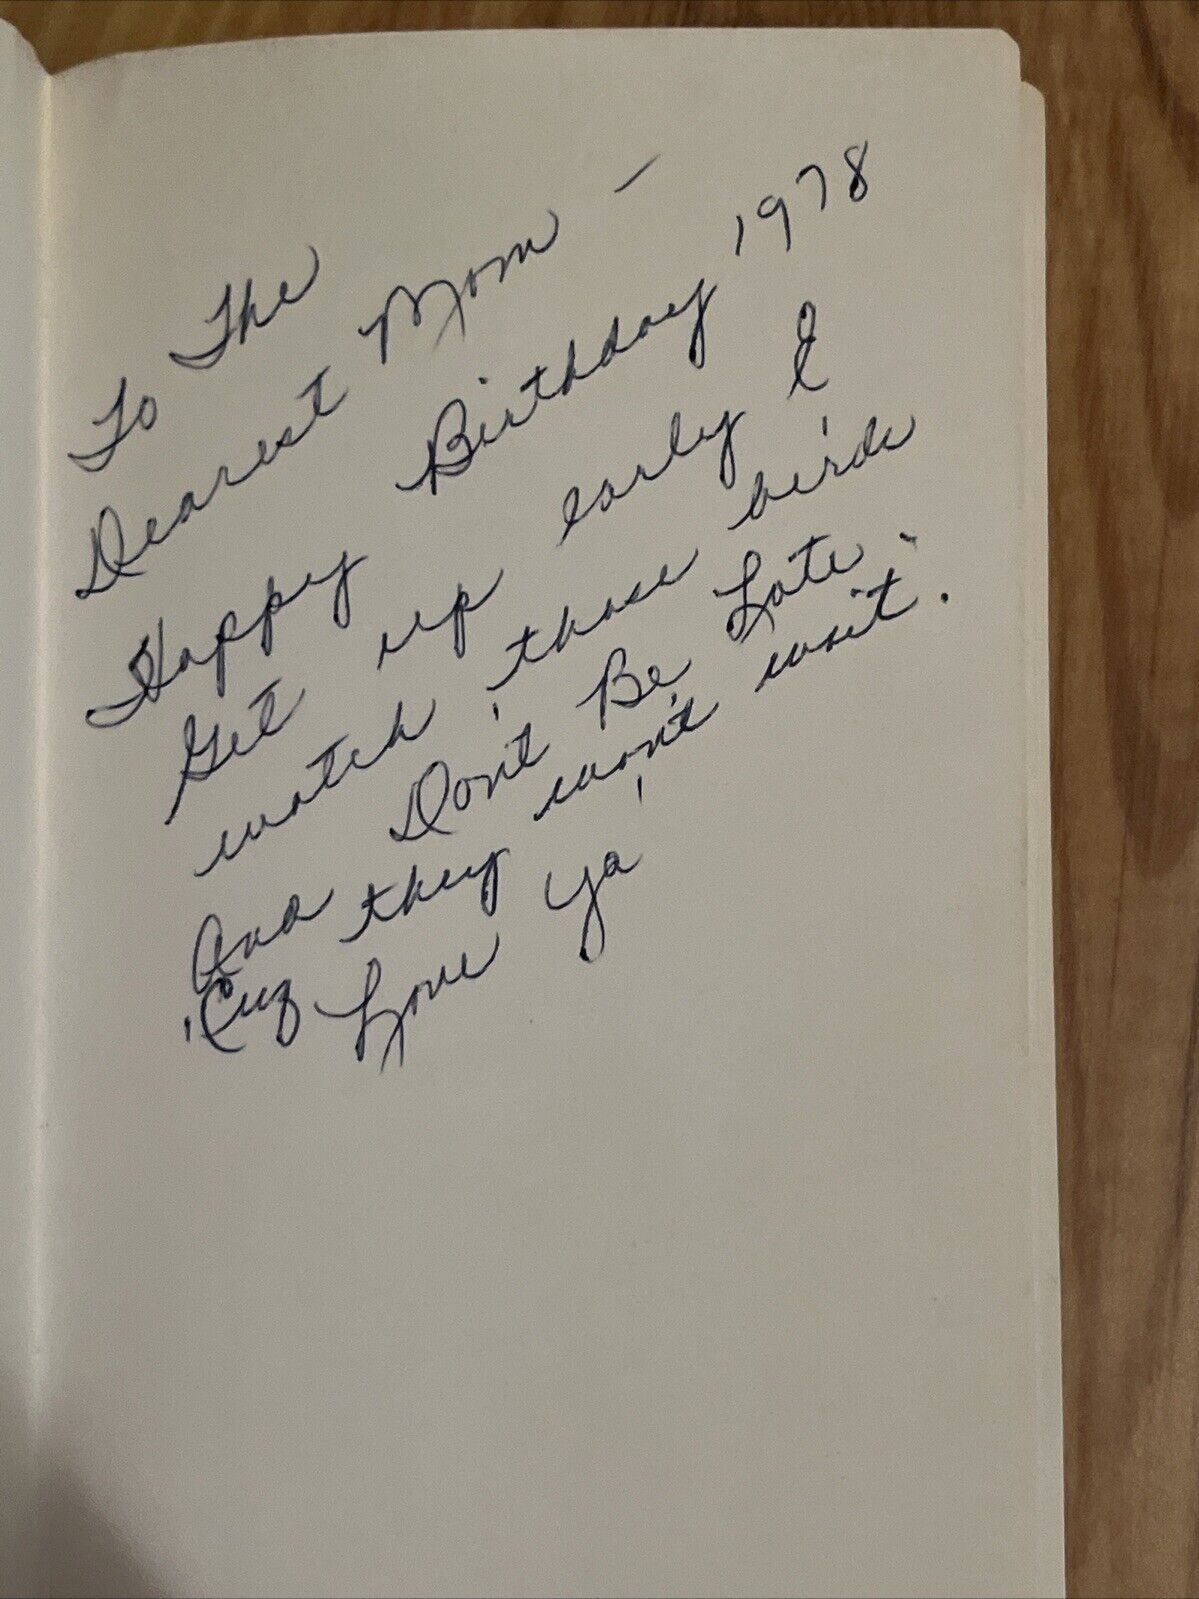 To The
Dearest Mom –
Happy Birthday 1978
Get up early &
watch those birds
And Don't Be Late.
'Cuz they won't wait.
Love ya'